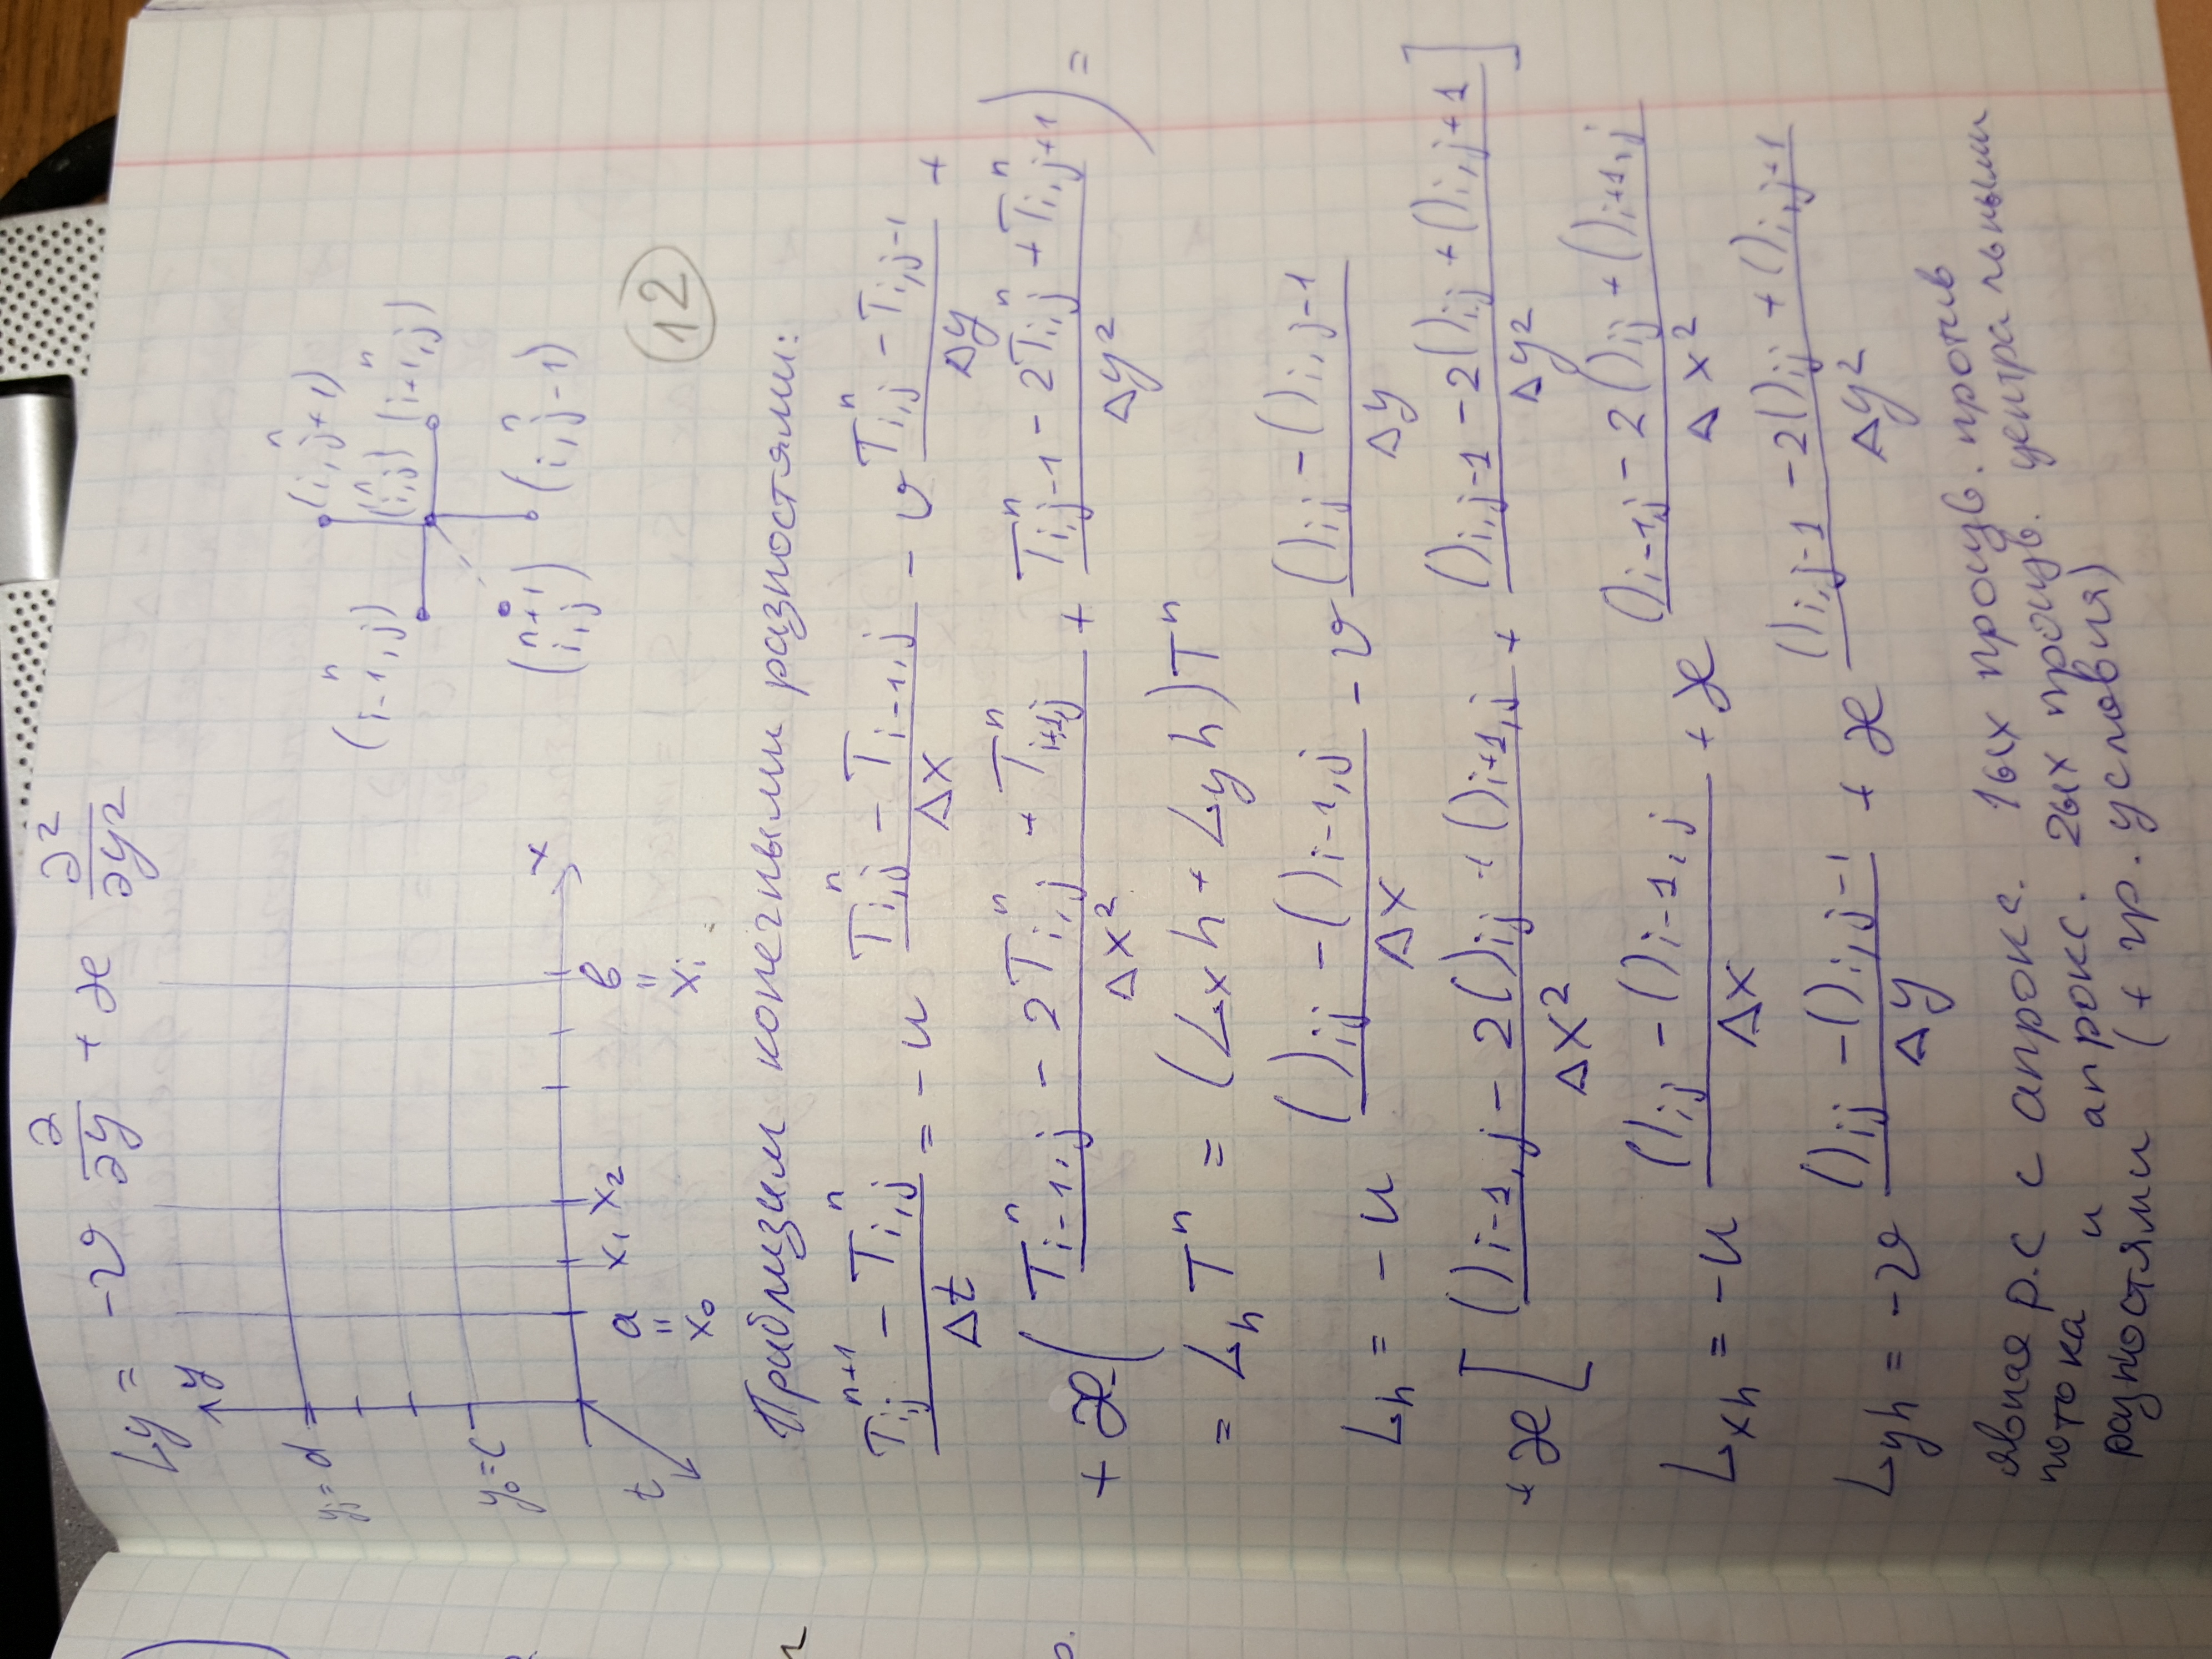 Ly = -v ∂/∂y + æ ∂²/∂y²
y
yⱼ = d
y₀ = c
x
t
a x₁ x₂ в
= =
x₀ xᵢ
n (i, j+1)
n (i-1, j)
n (i, j)
n (i+1, j)
(n+1 i, j)
n (i, j-1)
12
Приблизим конечными разностями:
(Tᵢⱼⁿ⁺¹ - Tᵢ,ⱼⁿ)/Δt = -u (Tᵢ,ⱼⁿ - Tᵢ₋₁,ⱼ)/Δx - v (Tᵢ,ⱼⁿ - Tᵢ,ⱼ₋₁)/Δy +
+ æ ( (Tᵢ₋₁,ⱼⁿ - 2Tᵢ,ⱼⁿ + Tᵢ₊₁,ⱼⁿ)/Δx² + (Tᵢ,ⱼ₋₁ⁿ - 2Tᵢ,ⱼⁿ + Tᵢ,ⱼ₊₁ⁿ)/Δy² ) =
= Lₕ Tⁿ = (Lxh + Lyh)Tⁿ
Lₕ = -u (()ᵢⱼ - ()ᵢ₋₁,ⱼ)/Δx - v (()ᵢⱼ - ()ᵢ,ⱼ₋₁)/Δy
+ æ [ (()ᵢ₋₁,ⱼ - 2()ᵢⱼ + ()ᵢ₊₁,ⱼ)/Δx² + (()ᵢ,ⱼ₋₁ - 2()ᵢⱼ + ()ᵢ,ⱼ₊₁)/Δy² ]
Lxh = -u (()ᵢⱼ - ()ᵢ₋₁,ⱼ)/Δx + æ (()ᵢ₋₁,ⱼ - 2()ᵢⱼ + ()ᵢ₊₁,ⱼ)/Δx²
Lyh = -v (()ᵢⱼ - ()ᵢ,ⱼ₋₁)/Δy + æ (()ᵢ,ⱼ₋₁ - 2()ᵢⱼ + ()ᵢ,ⱼ₊₁)/Δy²
явная р.с с апрокс. 1ых произв. против
потока и апрокс. 2ых произв. центральными
разностями (+ гр. условия)